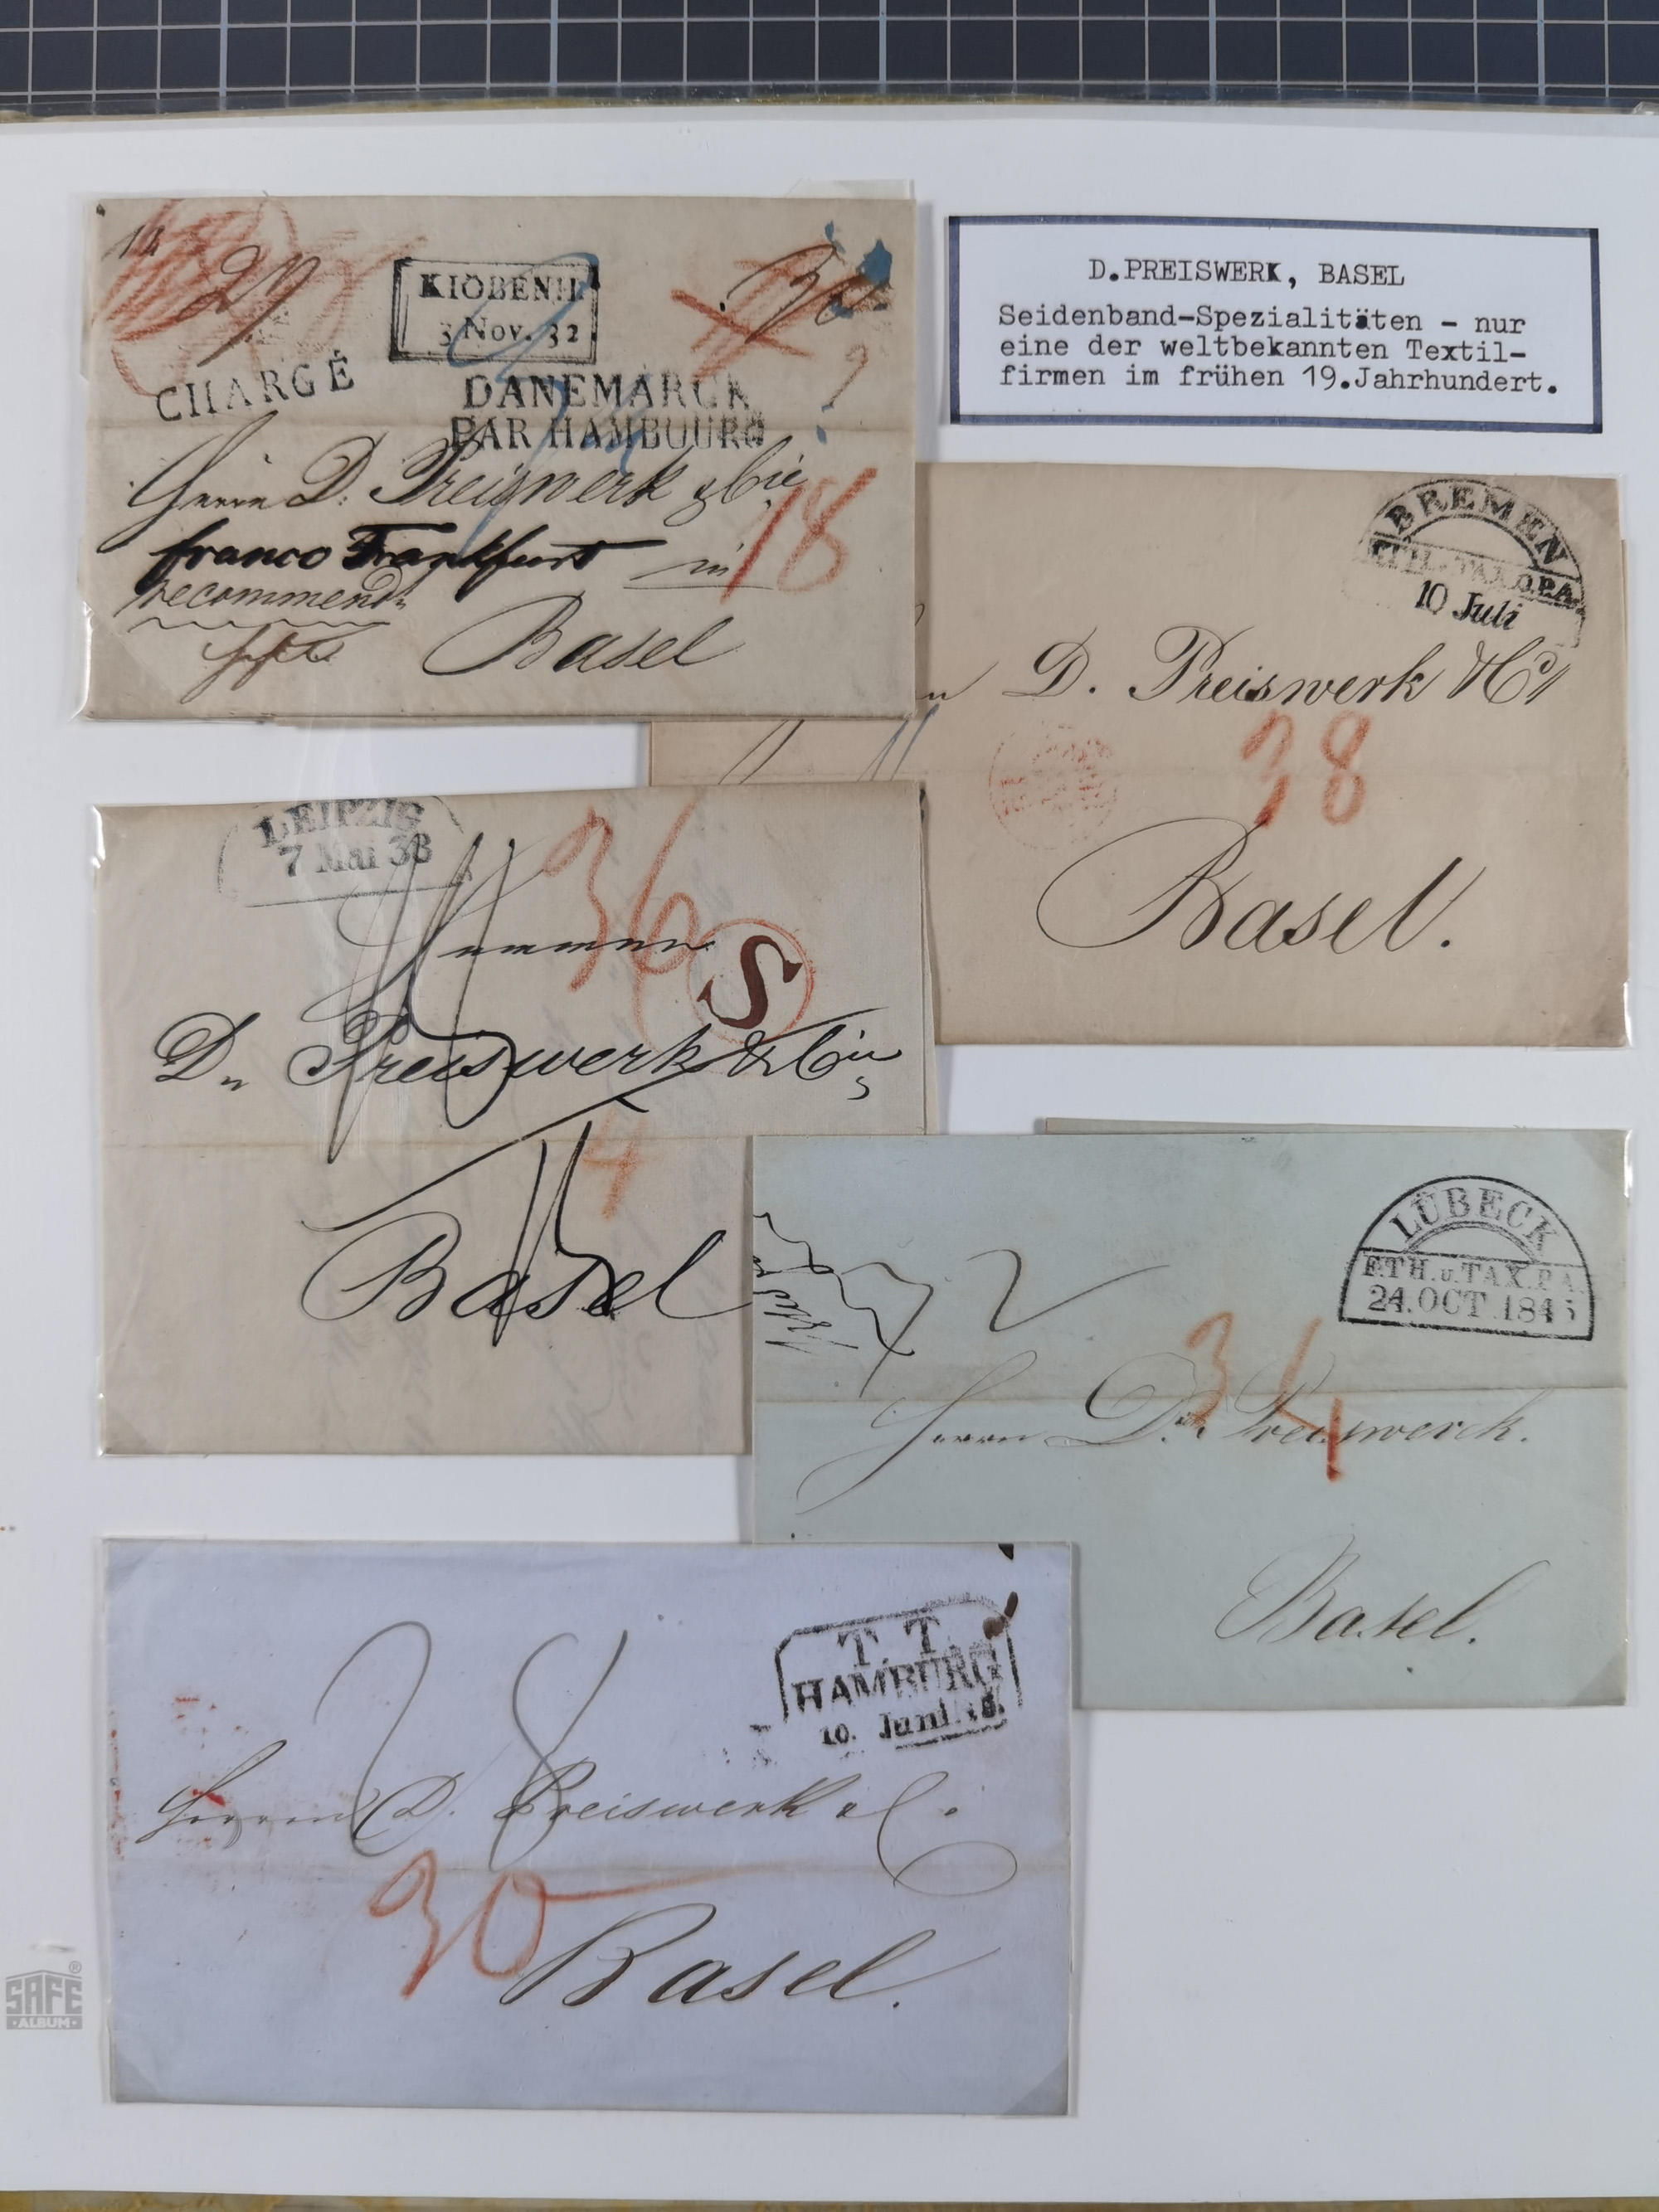 14
27
KIOBENH.
3 Nov. 32
CHARGÉ
DANEMARCK
PAR HAMBOURG
Herrn D. Preiswerk & Cie
18
franco Frankfurt in
recommend
Basel
D.PREISWERK, BASEL
Seidenband-Spezialitäten - nur
eine der weltbekannten Textil-
firmen im frühen 19.Jahrhundert.
BREMEN
10 Juli
D. Preiswerk & Co
38
Basel.
LEIPZIG
7 Mai 38
36
Herren
S
Dn Preiswerk & Cie
4
Basel
LÜBECK
F.TH.u.TAX.P.A.
24.OCT 184
Herrn Dn Preiswerck.
Basel.
T. T.
HAMBURG
10. Juni.
28
Herren D. Preiswerk & C.
30
Basel.
SAFE
ALBUM